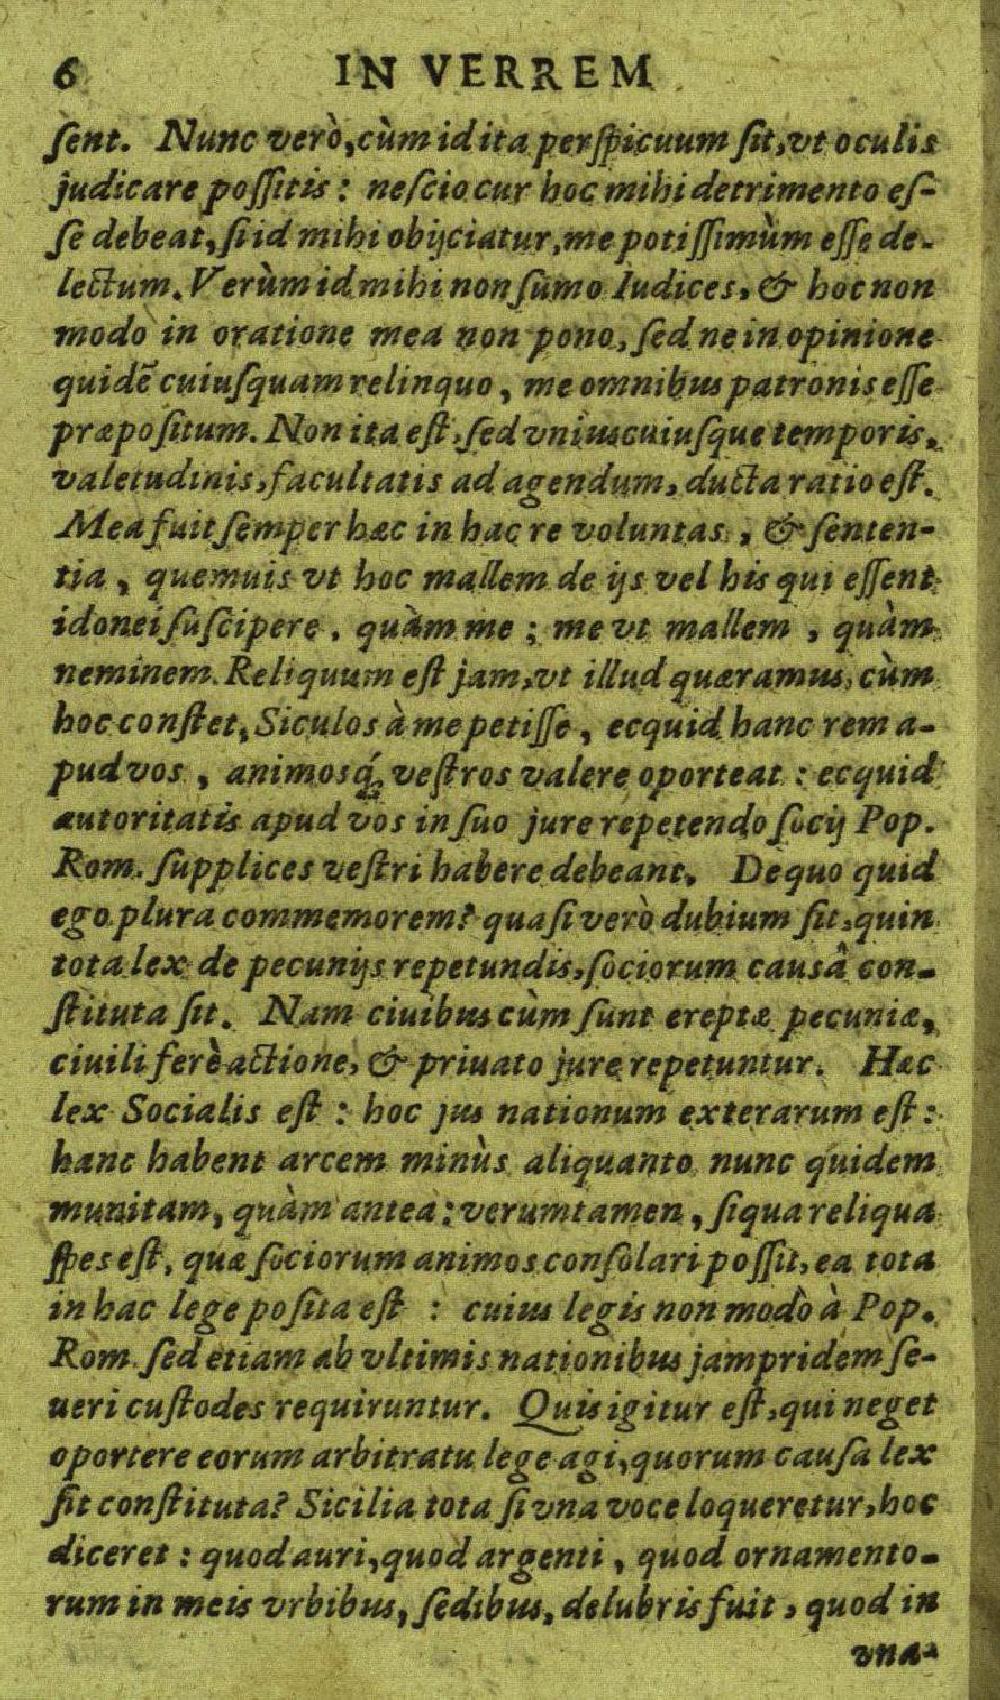 6 IN VERREM
sent. Nunc verò, cùm id ita perspicuum sit, vt oculis
judicare possitis: nescio cur hoc mihi detrimento es-
se debeat, si id mihi obijciatur, me potissimùm esse de-
lectum. Verùm id mihi non sumo Iudices, & hoc non
modo in oratione mea non pono, sed ne in opinione
quidē cuiusquam relinquo, me omnibus patronis esse
præpositum. Non ita est, sed vniuscuiusque temporis,
valetudinis, facultatis ad agendum, ducta ratio est.
Mea fuit semper hæc in hac re voluntas, & senten-
tia, quemuis vt hoc mallem de ijs vel his qui essent
idonei suscipere, quàm me; me vt mallem, quàm
neminem. Reliquum est jam, vt illud quæramus, cùm
hoc constet, Siculos à me petisse, ecquid hanc rem a-
pud vos, animosq́; vestros valere oporteat: ecquid
autoritatis apud vos in suo jure repetendo socij Pop.
Rom. supplices vestri habere debeant. De quo quid
ego plura commemorem? quasi verò dubium sit, quin
tota lex de pecunijs repetundis, sociorum causâ con-
stituta sit. Nam ciuibus cùm sunt ereptæ pecuniæ,
ciuili ferè actione, & priuato jure repetuntur. Hæc
lex Socialis est: hoc jus nationum exterarum est:
hanc habent arcem minùs aliquanto nunc quidem
munitam, quàm antea: verumtamen, siqua reliqua
spes est, quæ sociorum animos consolari possit, ea tota
in hac lege posita est: cuius legis non modò à Pop.
Rom. sed etiam ab vltimis nationibus jampridem se-
ueri custodes requiruntur. Quis igitur est, qui neget
oportere eorum arbitratu lege agi, quorum causa lex
sit constituta? Sicilia tota si vna voce loqueretur, hoc
diceret: quod auri, quod argenti, quod ornamento-
rum in meis vrbibus, sedibus, delubris fuit, quod in
vna-